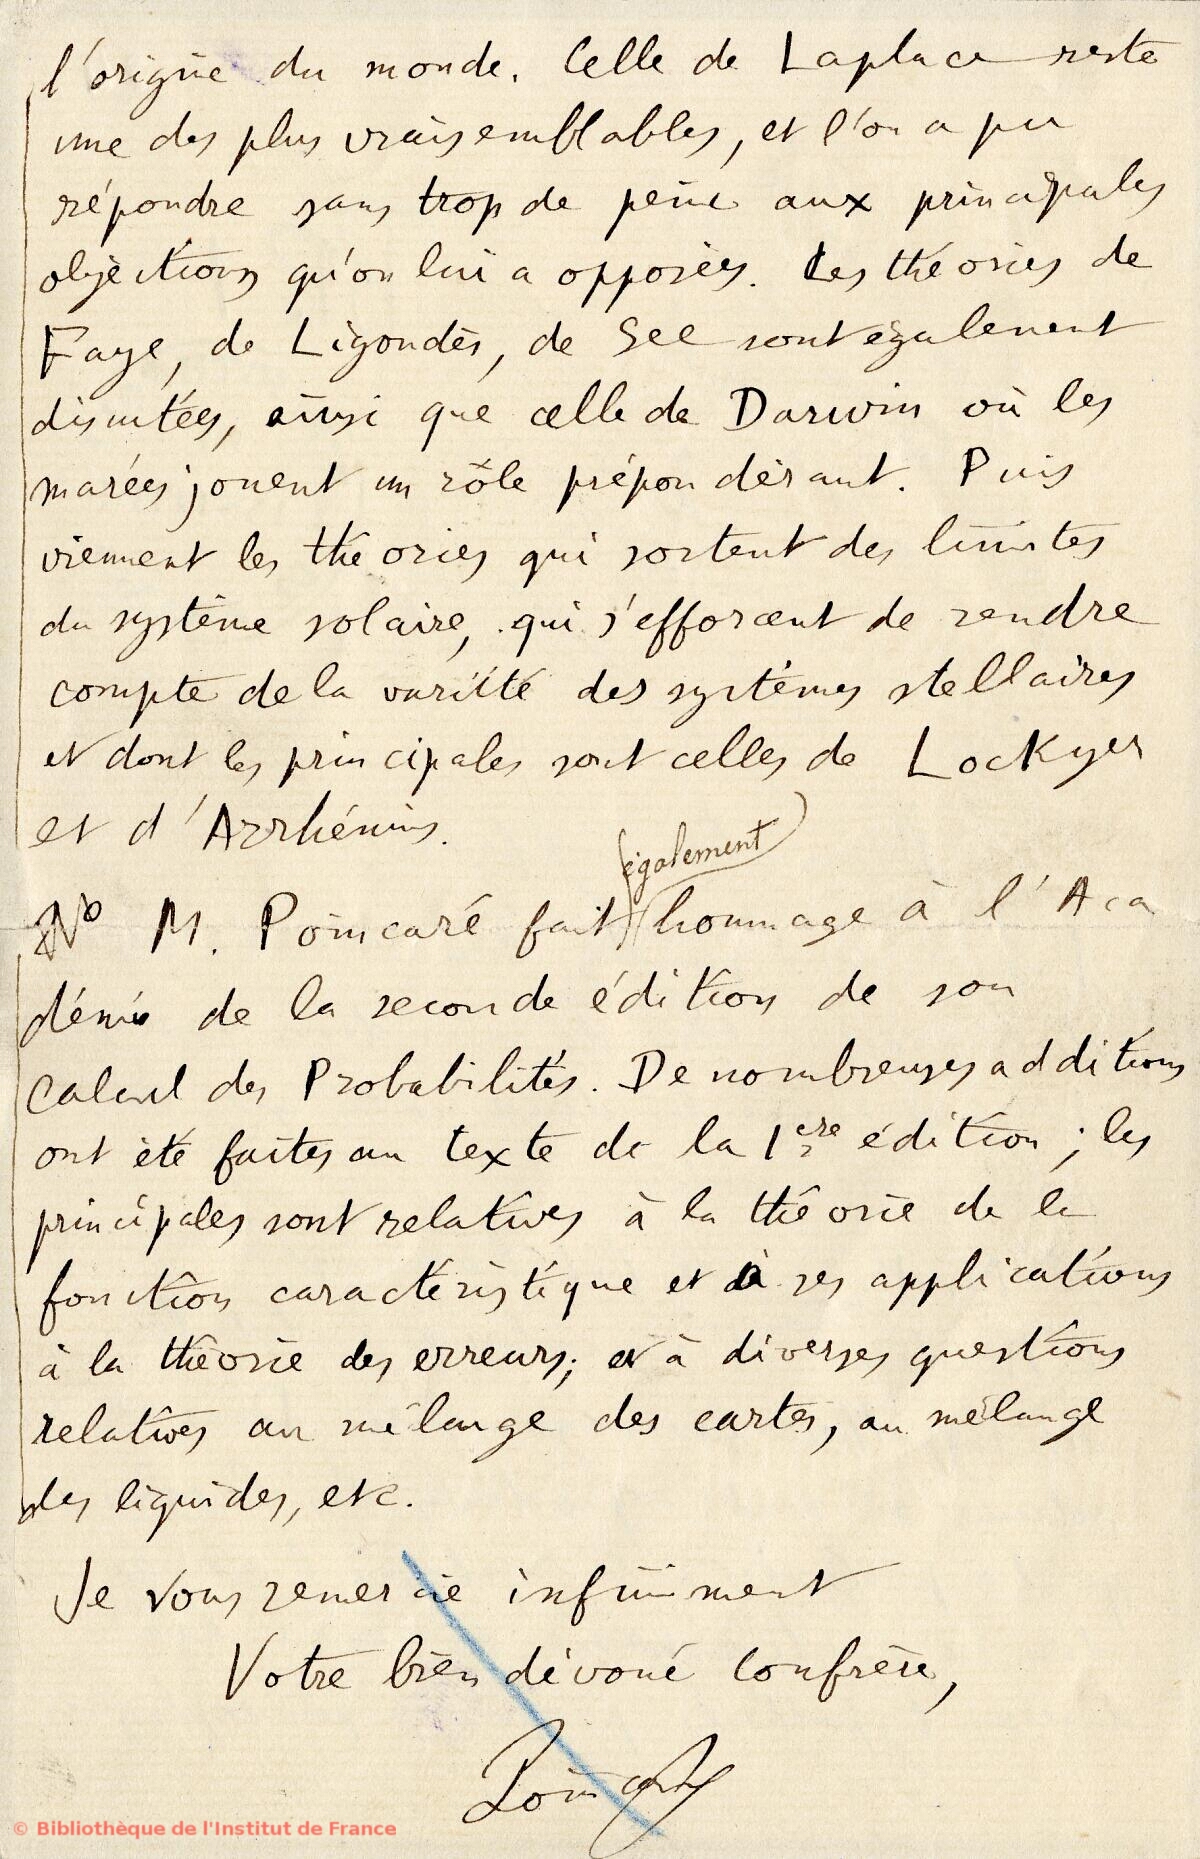 l'origine du monde. Celle de Laplace reste
une des plus vraisemblables, et l'on a pu
répondre sans trop de peine aux principales
objections qu'on lui a opposées. Les théories de
Faye, de Ligondès, de See sont également
discutées, ainsi que celle de Darwin où les
marées jouent un rôle prépondérant. Puis
viennent les théories qui sortent des limites
du système solaire, qui s'efforcent de rendre
compte de la variété des systèmes stellaires
et dont les principales sont celles de Lockyer
et d'Arrhénius.
également
M. Poincaré fait hommage à l'Aca
démie de la seconde édition de son
Calcul des Probabilités. De nombreuses additions
ont été faites au texte de la 1ère édition ; les
principales sont relatives à la théorie de la
fonction caractéristique et à ses applications
à la théorie des erreurs; et à diverses questions
relatives au mélange des cartes, au mélange
des liquides, etc.
Je vous remercie infiniment
Votre bien dévoué confrère,
Poincaré
© Bibliothèque de l'Institut de France